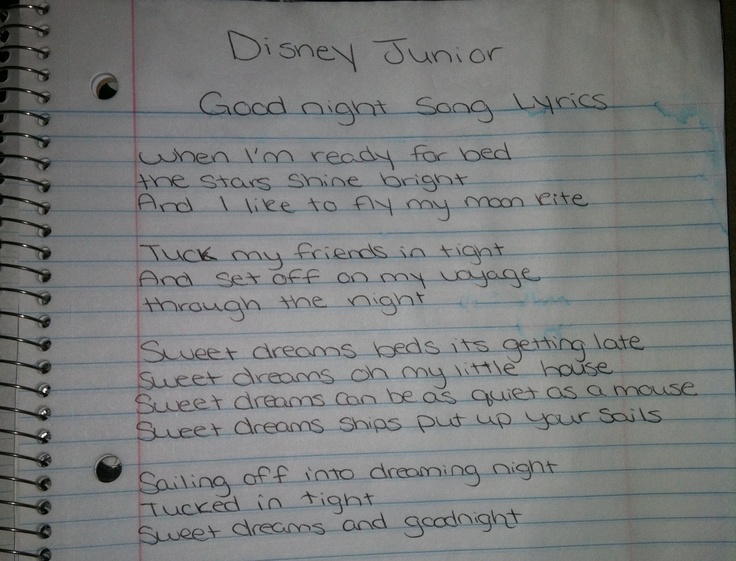 Disney Junior
Good night Song Lyrics
When I'm ready for bed
the stars shine bright
And I like to fly my moon kite
Tuck my friends in tight
And set off on my voyage
through the night
Sweet dreams beds its getting late
Sweet dreams oh my little house
Sweet dreams can be as quiet as a mouse
Sweet dreams ships put up your sails
Sailing off into dreaming night
Tucked in tight
Sweet dreams and goodnight